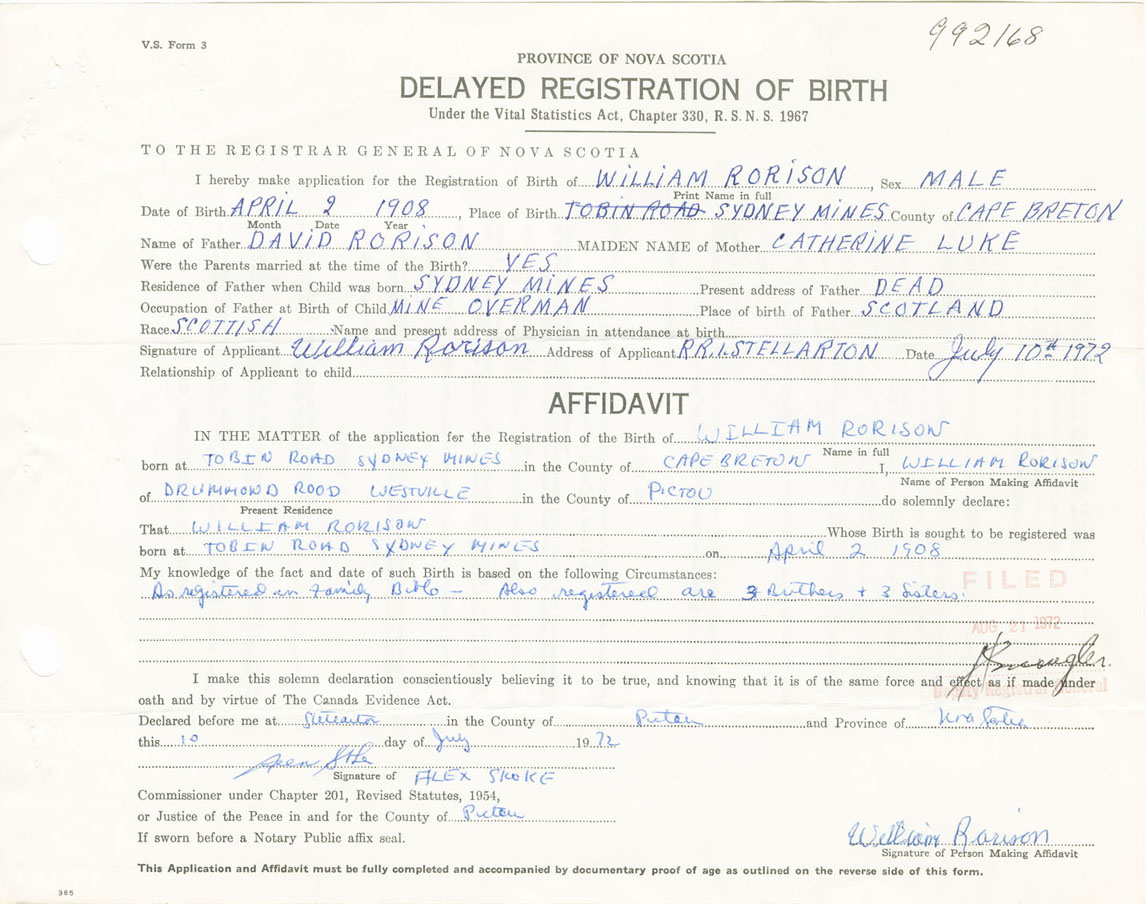 992168
V.S. Form 3
PROVINCE OF NOVA SCOTIA
DELAYED REGISTRATION OF BIRTH
Under the Vital Statistics Act, Chapter 330, R. S. N. S. 1967
TO THE REGISTRAR GENERAL OF NOVA SCOTIA
I hereby make application for the Registration of Birth of WILLIAM RORISON, Sex MALE
Print Name in full
Date of Birth APRIL 2 1908, Place of Birth TOBIN ROAD SYDNEY MINES County of CAPE BRETON
Month Date Year
Name of Father DAVID RORISON MAIDEN NAME of Mother CATHERINE LUKE
Were the Parents married at the time of the Birth? YES
Residence of Father when Child was born SYDNEY MINES Present address of Father DEAD
Occupation of Father at Birth of Child MINE OVERMAN Place of birth of Father SCOTLAND
Race SCOTTISH Name and present address of Physician in attendance at birth
Signature of Applicant William Rorison Address of Applicant RR.1.STELLARTON Date July 10th 1972
Relationship of Applicant to child
AFFIDAVIT
IN THE MATTER of the application for the Registration of the Birth of WILLIAM RORISON
Name in full
born at TOBIN ROAD SYDNEY MINES in the County of CAPE BRETON I, WILLIAM RORISON
Name of Person Making Affidavit
of DRUMMOND ROOD WESTVILLE in the County of PICTOU do solemnly declare:
Present Residence
That WILLIAM RORISON Whose Birth is sought to be registered was
born at TOBIN ROAD SYDNEY MINES on April 2 1908
My knowledge of the fact and date of such Birth is based on the following Circumstances:
FILED
As registered in Family – Also registered are 3 Brothers + 3 Sisters.
AUG 21 1972
I make this solemn declaration conscientiously believing it to be true, and knowing that it is of the same force and effect as if made under
Deputy Registrar General
oath and by virtue of The Canada Evidence Act.
Declared before me at in the County of Pictou and Province of Nova Scotia
this 10 day of July 1972
Signature of ALEX SKOKE
Commissioner under Chapter 201, Revised Statutes, 1954,
or Justice of the Peace in and for the County of Pictou
If sworn before a Notary Public affix seal.
William Rorison
Signature of Person Making Affidavit
This Application and Affidavit must be fully completed and accompanied by documentary proof of age as outlined on the reverse side of this form.
385